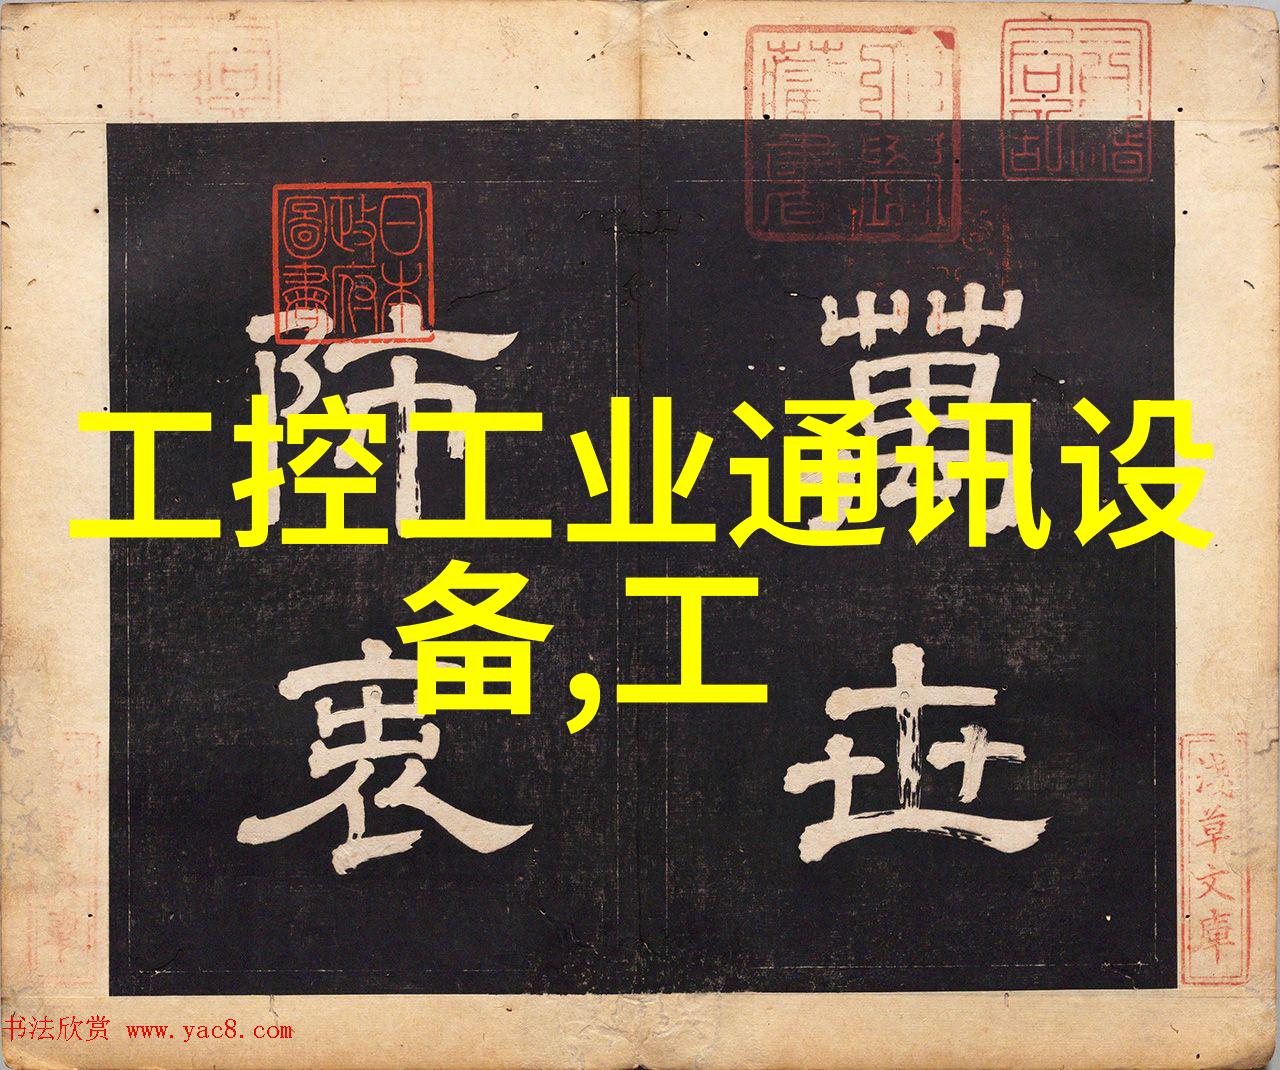 工控工业通讯设
备,工
萬世
陈衷
日本
政府
圖書
淺草文庫
书法欣赏 www.yac8.com